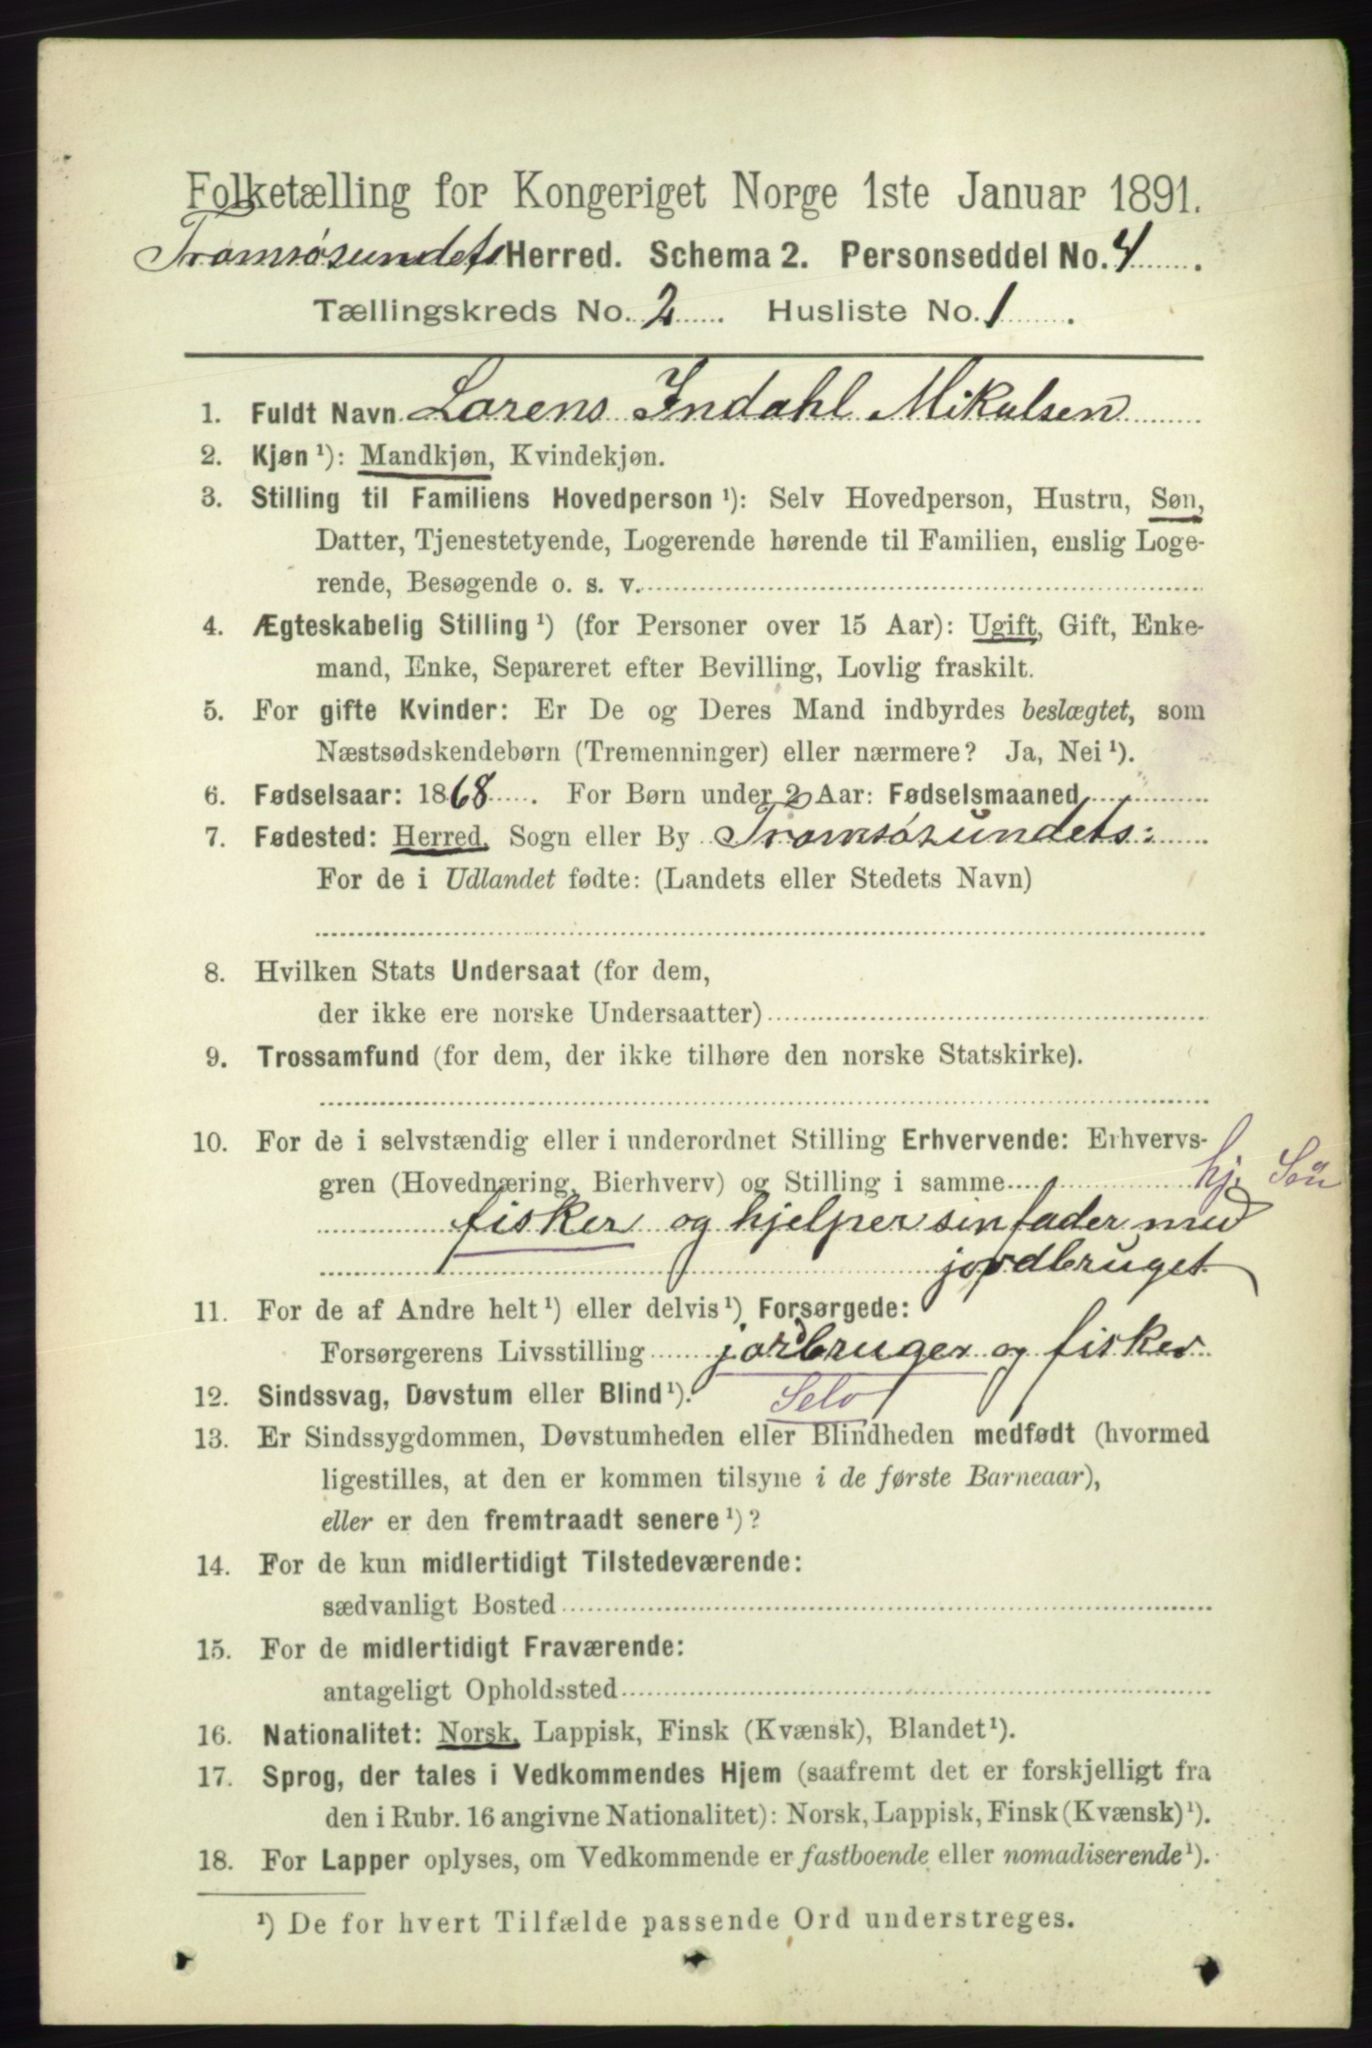 Folketælling for Kongeriget Norge 1ste Januar 1891.
Tromsøsundets Herred. Schema 2. Personseddel No. 4
Tællingskreds No. 2 Husliste No. 1
1. Fuldt Navn Lorens Indahl Mikalsen
2. Kjøn ¹): Mandkjøn, Kvindekjøn.
3. Stilling til Familiens Hovedperson ¹): Selv Hovedperson, Hustru, Søn,
Datter, Tjenestetyende, Logerende hørende til Familien, enslig Loge-
rende, Besøgende o. s. v.
4. Ægteskabelig Stilling ¹) (for Personer over 15 Aar): Ugift, Gift, Enke-
mand, Enke, Separeret efter Bevilling, Lovlig fraskilt.
5. For gifte Kvinder: Er De og Deres Mand indbyrdes beslægtet, som
Næstsødskendebørn (Tremenninger) eller nærmere? Ja, Nei ¹).
6. Fødselsaar: 1868. For Børn under 2 Aar: Fødselsmaaned
7. Fødested: Herred, Sogn eller By Tromsøsundets:
For de i Udlandet fødte: (Landets eller Stedets Navn)
8. Hvilken Stats Undersaat (for dem,
der ikke ere norske Undersaatter)
9. Trossamfund (for dem, der ikke tilhøre den norske Statskirke).
10. For de i selvstændig eller i underordnet Stilling Erhvervende: Erhvervs-
gren (Hovednæring, Bierhverv) og Stilling i samme hj. Søn
fisker og hjelper sin fader med
jordbruget
11. For de af Andre helt ¹) eller delvis ¹) Forsørgede:
Forsørgerens Livsstilling jordbruger og fisker
12. Sindssvag, Døvstum eller Blind ¹). Selv
13. Er Sindssygdommen, Døvstumheden eller Blindheden medfødt (hvormed
ligestilles, at den er kommen tilsyne i de første Barneaar),
eller er den fremtraadt senere ¹)?
14. For de kun midlertidigt Tilstedeværende:
sædvanligt Bosted
15. For de midlertidigt Fraværende:
antageligt Opholdssted
16. Nationalitet: Norsk, Lappisk, Finsk (Kvænsk), Blandet ¹).
17. Sprog, der tales i Vedkommendes Hjem (saafremt det er forskjelligt fra
den i Rubr. 16 angivne Nationalitet): Norsk, Lappisk, Finsk (Kvænsk) ¹).
18. For Lapper oplyses, om Vedkommende er fastboende eller nomadiserende ¹).
¹) De for hvert Tilfælde passende Ord understreges.